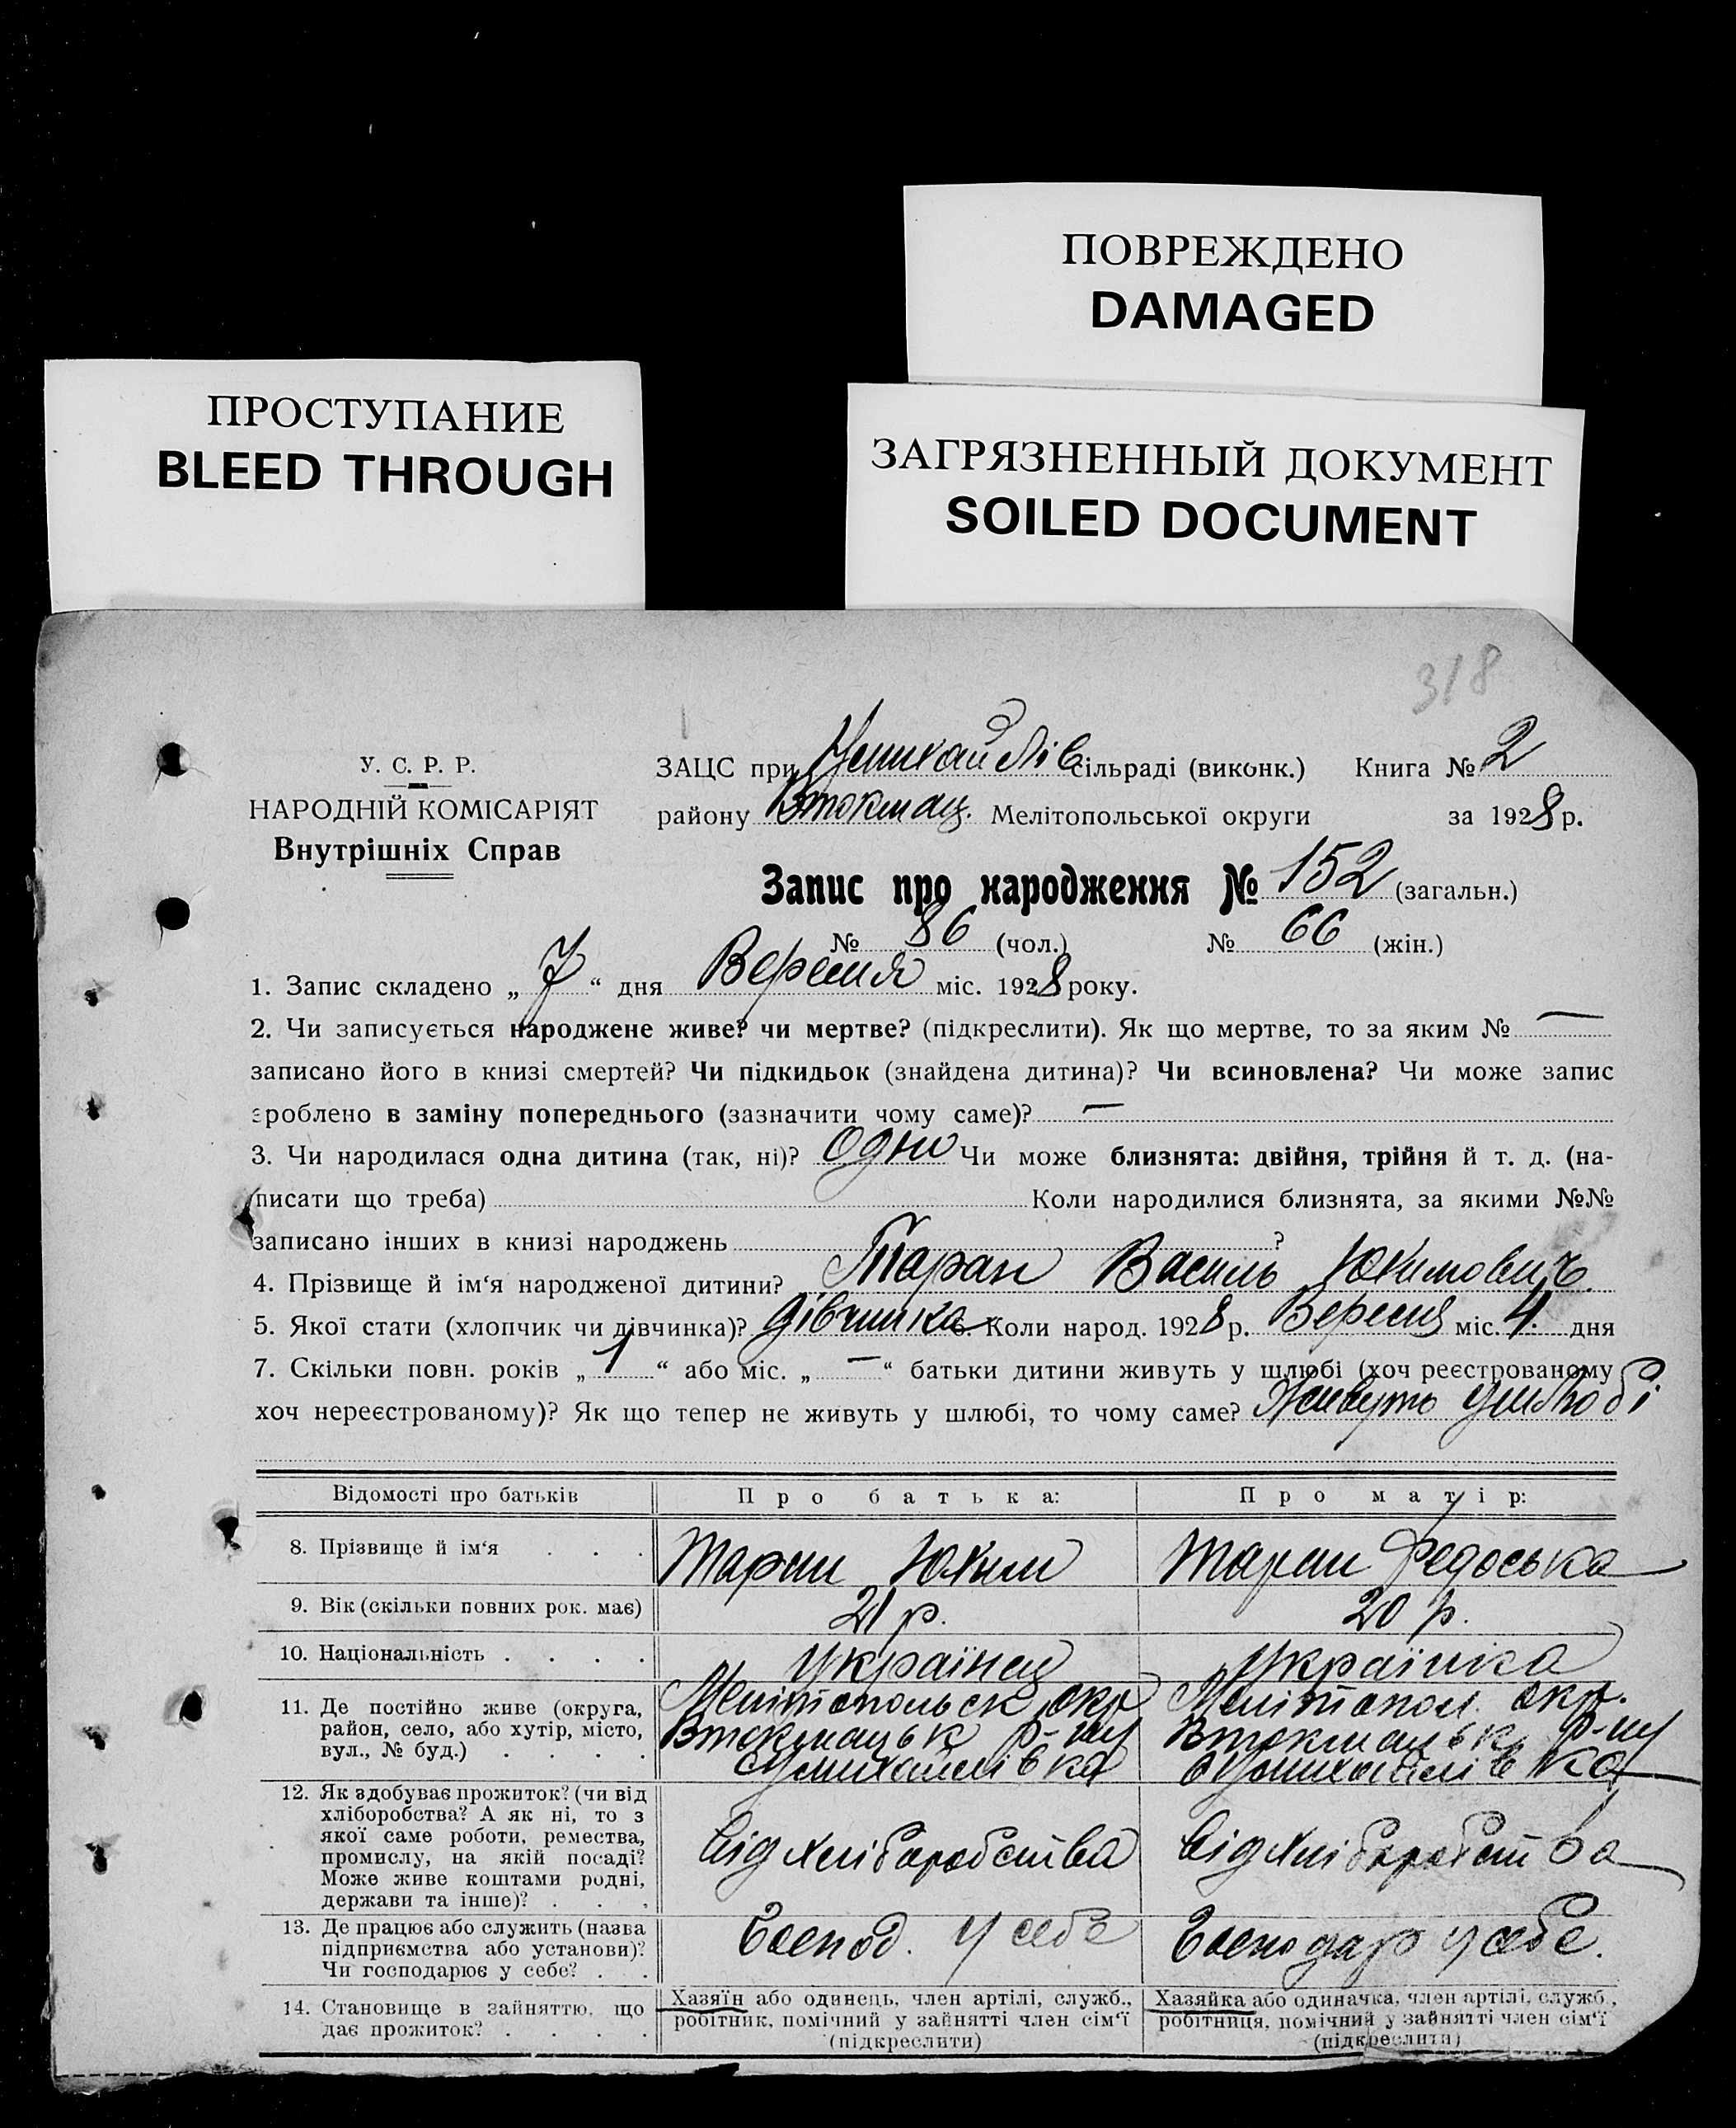 ПОВРЕЖДЕНО
DAMAGED
ПРОСТУПАНИЕ
BLEED THROUGH
ЗАГРЯЗНЕННЫЙ ДОКУМЕНТ
SOILED DOCUMENT
318
У. С. Р. Р.
НАРОДНІЙ КОМІСАРІЯТ
Внутрішніх Справ
ЗАЦС при сільраді (виконк.) Книга № 2
району Втокмац. Мелітопольської округи за 1928 р.
Запис про народження № 152 (загальн.)
№ 86 (чол.) № 66 (жін.)
1. Запис складено „ 7 “ дня Вересня міс. 1928 року.
2. Чи записується народжене живе? чи мертве? (підкреслити). Як що мертве, то за яким № —
записано його в книзі смертей? Чи підкидьок (знайдена дитина)? Чи всиновлена? Чи може запис
зроблено в заміну попереднього (зазначити чому саме)? —
3. Чи народилася одна дитина (так, ні)? Одно Чи може близнята: двійня, трійня й т. д. (на-
писати що треба) Коли народилися близнята, за якими №№
записано інших в книзі народжень ?
4. Прізвище й ім‘я народженої дитини? Таран Василь Юхимович
5. Якої стати (хлопчик чи дівчинка)? дівчинка 6. Коли народ. 1928 р. Вересня міс. 4. дня
7. Скільки повн. років „ 1 “ або міс. „ — “ батьки дитини живуть у шлюбі (хоч реєстрованому
хоч нереєстрованому)? Як що тепер не живуть у шлюбі, то чому саме? Живуть ушлюбі
Відомості про батьків
Про батька:
Про матір:
8. Прізвище й ім‘я . . .
Таран Юхим
Таран Федоська
9. Вік (скільки повних рок. має)
21 р.
20 р.
10. Національність . . . .
Українец
Українка
11. Де постійно живе (округа,
район, село, або хутір, місто,
вул., № буд.) . . . .
Мелітопольськ окр
Втокмацьк р-ну
Мелітопол. окр.
Втокмацьк р-ну
12. Як здобуває прожиток? (чи від
хліборобства? А як ні, то з
якої саме роботи, ремества,
промислу, на якій посаді?
Може живе коштами родні,
держави та інше)? . . .
від хліборобства
від хліборобства
13. Де працює або служить (назва
підприємства або установи)?
Чи господарює у себе? . . .
Господ. у себе
Господар у себе.
14. Становище в зайняттю, що
дає прожиток? . . . .
Хазяїн або одинець, член артілі, служб.,
робітник, помічний у зайнятті член сім‘ї
(підкреслити)
Хазяйка або одиначка, член артілі, служб.,
робітниця, помічний у зайнятті член сім‘ї
(підкреслити)